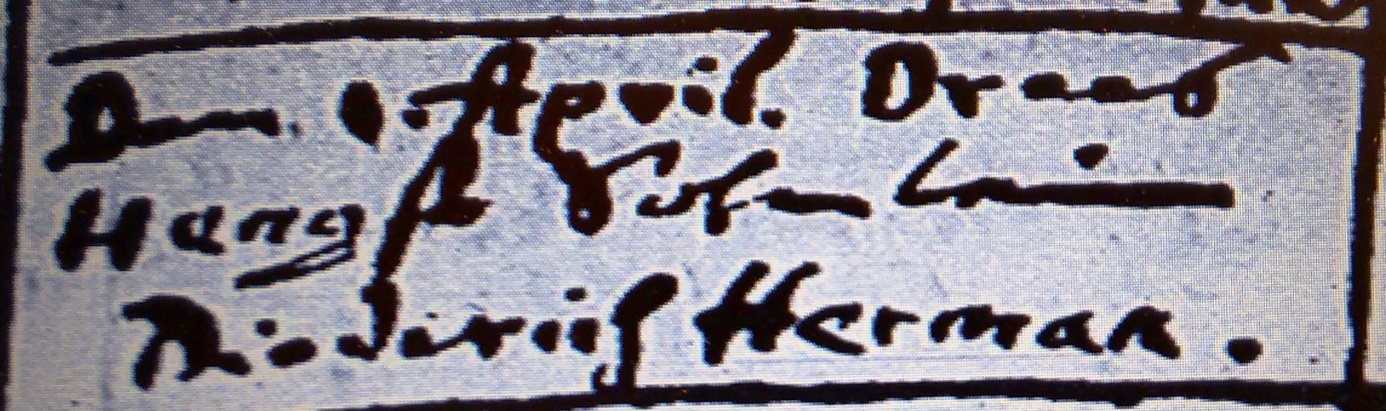 Den 1. April. Drees
Hangs Sohnlein
Diderich Herman.